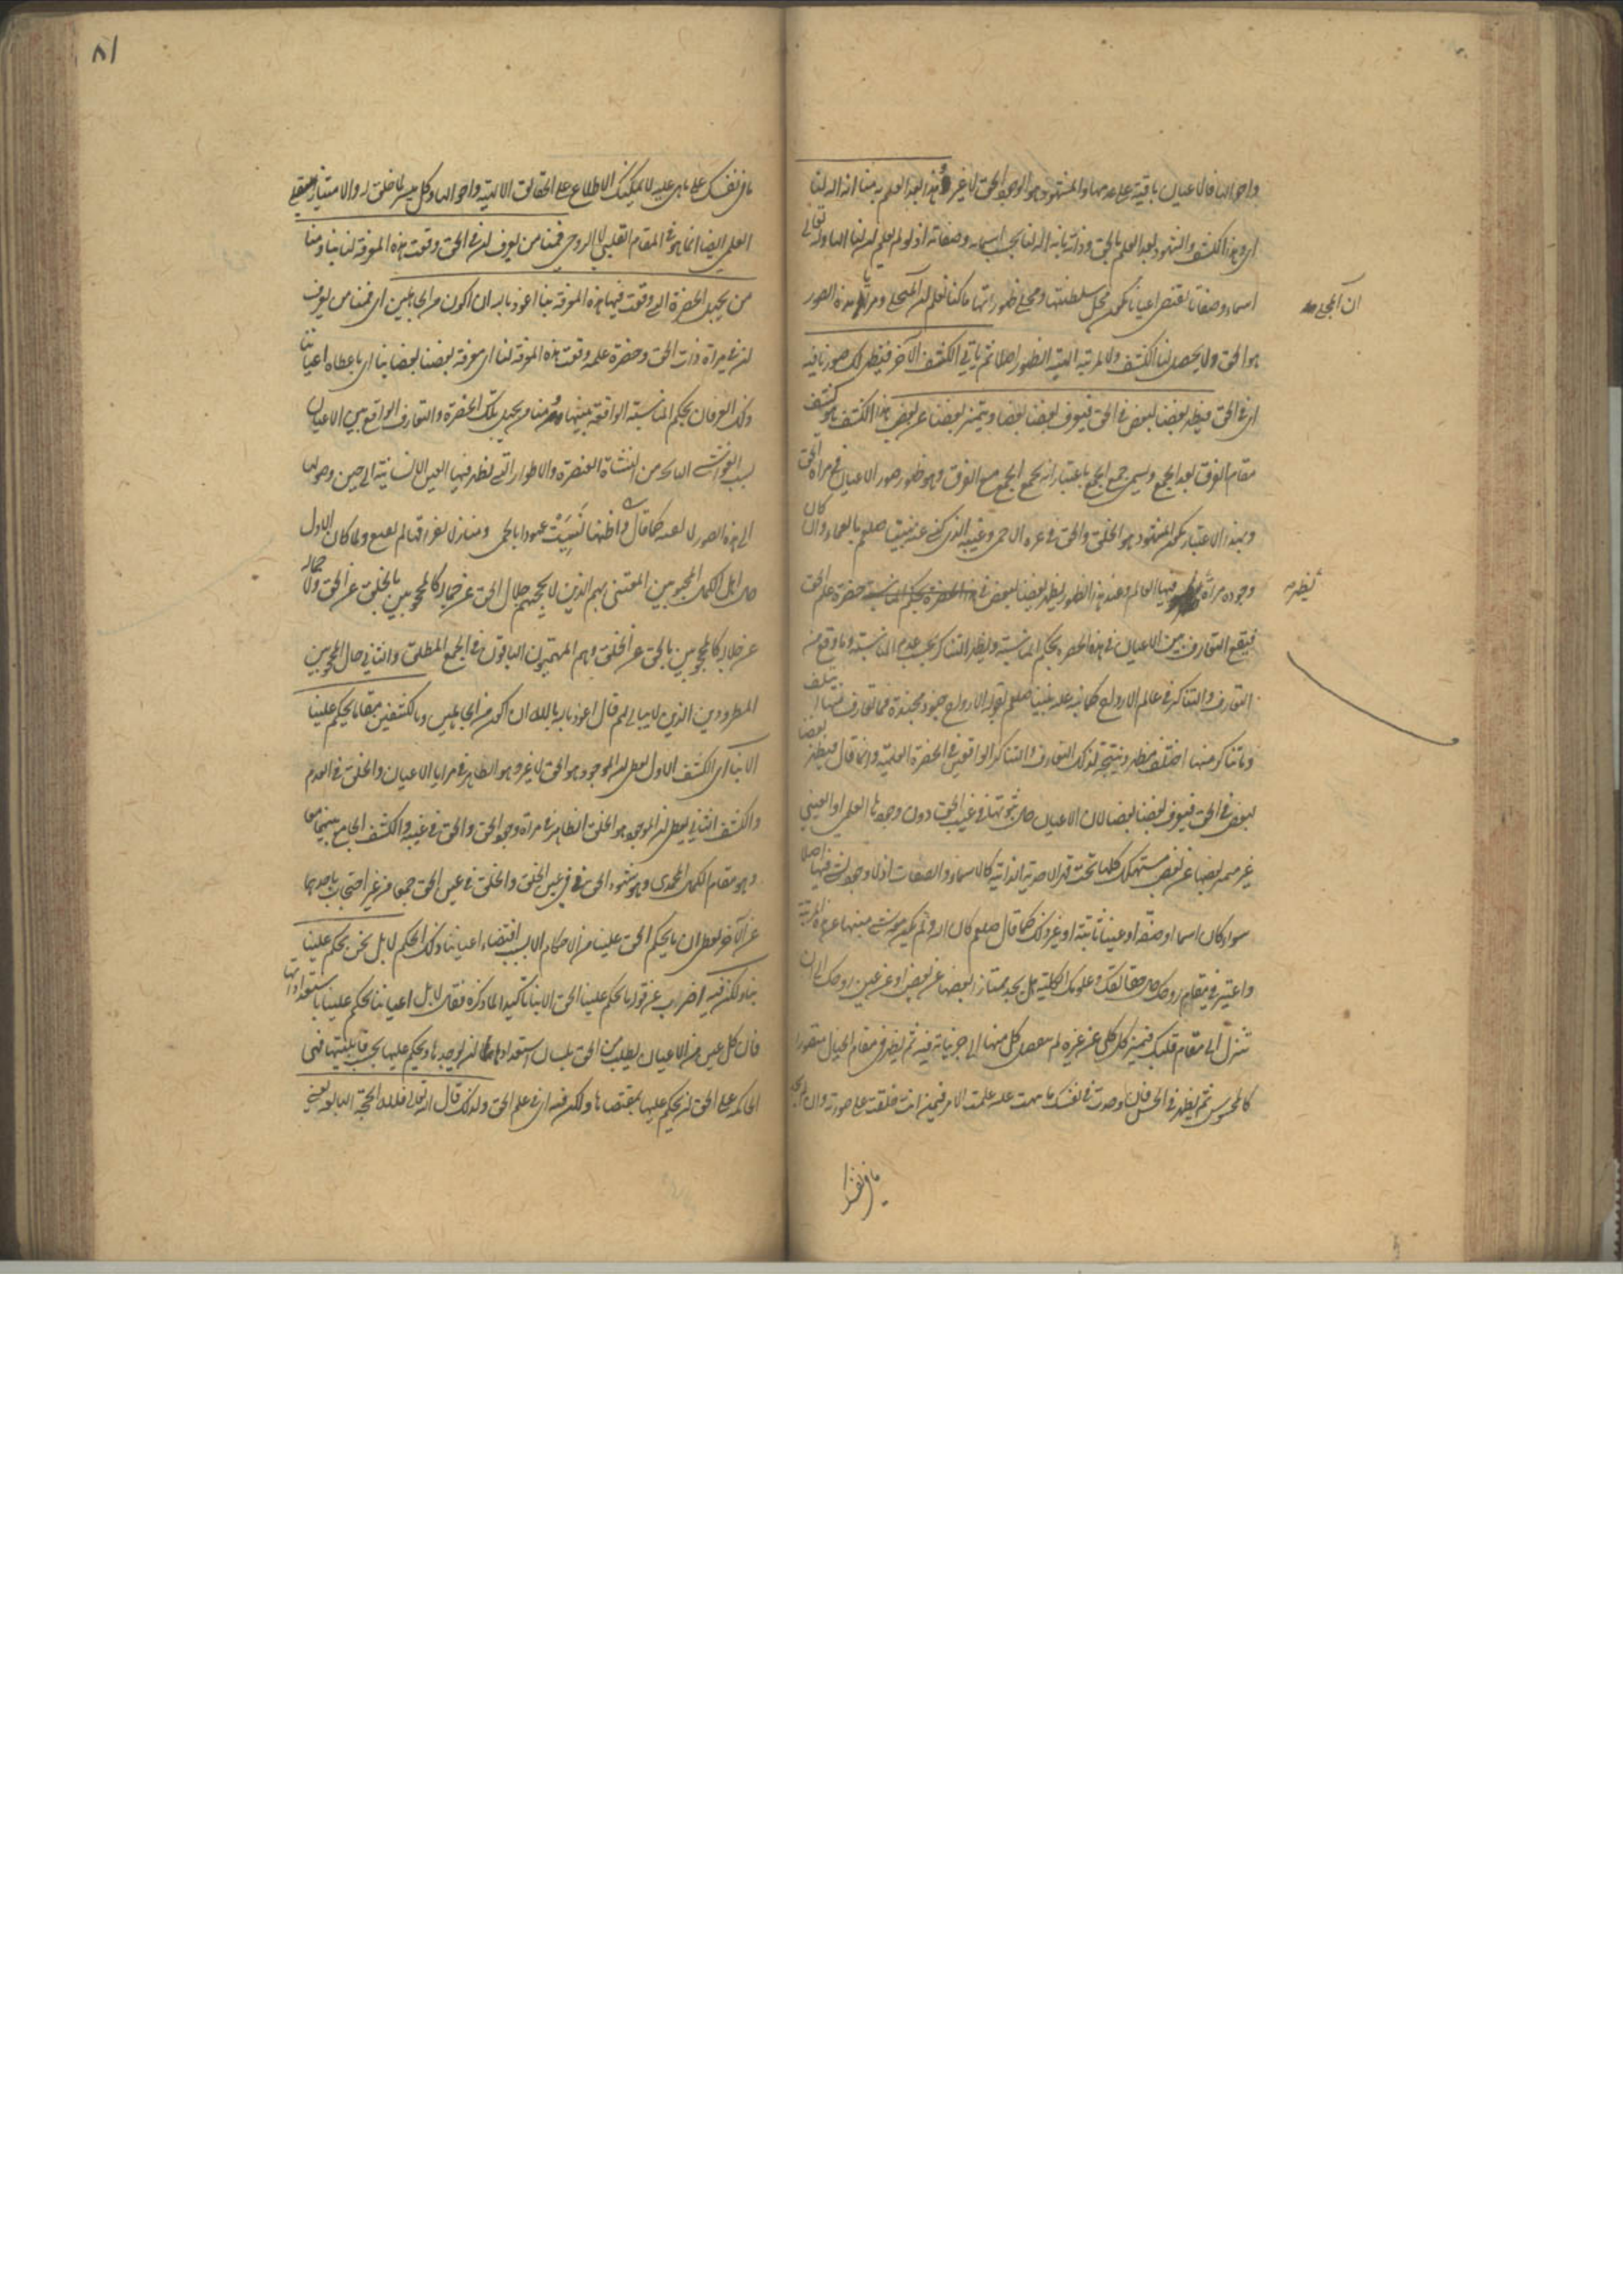 واحوالها فالاعيان باقية على عدمها والمشهود هو الوجود الحق لا غير وهذا بعد العلم به منا انه اله لنا
اى وهذا الكشف والشهود بعد العلم بالحق وذاته بانه اله لنا بحسب اسمائه وصفاته اذ لو لم نعلم ان لنا الها وله تعالى
اسماء وصفات تقتضى اعياننا لتكون محل سلطنتها ومجلى ظهوراتها ما كنا نعلم ان المتجلى ومرآتها هذه الصور
هو الحق ولا يحصل لنا الكشف ولا لمرتبة الظهور اصلا ثم ياتى الكشف الآخر فيظهر لك صورنا فيه
اى فى الحق فيظهر بعضنا لبعض فى الحق فيعرف بعضنا بعضا ويتميز بعضنا عن بعض هذا الكشف هو كشف
مقام الفرق بعد الجمع ويسمى جمع الجمع باعتبار انه يجمع الجمع مع الفرق وهو ظهور صور الاعيان فى مرآة الحق
وبهذا الاعتبار يكون المشهود هو الخلق والحق فى عزه الاحمى وغيبه الذى كنى عنه نبينا صلعم بالعماء وان كان
وجوده مرآة يظهر فيها العالم وعند هذا الظهور يظهر بعضنا لبعض فى حضرة علم الحق
فيقع التعارف بين الاعيان فى هذه الحضرة بحكم المناسبة ويظهر التناكر بحسب عدم المناسبة وما وقع من
التعارف والتناكر فى عالم الارواح كما نبه عليه نبينا صلعم بقوله الارواح جنود مجندة فما تعارف منها ايتلف
وما تناكر منها اختلف مظهر ونتيجة لذلك التعارف والتناكر الواقعين فى الحضرة العلمية وانما قال فيظهر بعضنا
لبعض فى الحق فيعرف بعضنا بعضا لان الاعيان حال ثبوتها فى غيب الحق دون وجودها العلمى او العينى
غير متميز بعضها عن بعض مستهلك كلها تحت قهر الاحدية الذاتية كالاسماء والصفات اذ لا وجود لشئ فيها اصلا
سواء كان اسما او صفة او عينا ثابتة او غير ذلك كما قال صلعم كان الله ولم يكن معه شئ منبها عن هذه المرتبة
واعتبر فى مقام روحك حال حقائقك وعلومك الكلية هل تجد ممتازا بعضها عن بعض او عن عين روحك الى ان
تنزل الى مقام قلبك فيتميز كل كلى عن غيره ثم يتفصل كل منها الى جزئياته فيه ثم يظهر فى مقام الخيال متصورا
كالمحسوس ثم يظهر فى الحس فان وجدت فى نفسك ما نبهت عليه علمت الامر فيمن انت خلقت على صورته وان لم تجد
ما فى نفسك
ان المتجلى
يظهر
٨١
ما فى نفسك على ما هى عليه لا يمكنك الاطلاع على الحقائق الالهية واحوالها وكل ميسر لما خلق له والامتياز
العلمى ايضا انما هو فى المقام القلبى لا الروحى فمنا من يعرف ان فى الحق وقعت هذه المعرفة لنا بنا ومنا
من يجهل الحضرة التى وقعت فيها هذه المعرفة بنا اعوذ بالله ان اكون من الجاهلين اى فمنا من يعرف
ان فى مرآة ذات الحق وحضرة علمه وقعت هذه المعرفة لنا اى معرفة بعضنا بعضا بنا اى باعطاء اعياننا
ذلك العرفان بحكم المناسبة الواقعة بينها ومنا من يجهل تلك الحضرة والتعارف الواقع بين الاعيان
بسبب الغواشى الناتجة من النشأة العنصرية والاطوار التى يظهر فيها العين الانسانية الى حين وصولها
الى هذه الصورة العنصرية كما قال ش واظنها نسيت عهودا بالحمى ومنازل بفراقها لم تقنع ولما كان الاول
حال اهل الكمال المحبوبين المعتنى بهم الذين لا يحجبهم جلال الحق عن جماله كالمحجوبين بالخلق عن الحق ولا جماله
عن جلاله كالمحجوبين بالحق عن الخلق وهم المهيمون الباقون فى الجمع المطلق والثانى حال المحجوبين
المطرودين الذين لا يبالى بهم قال اعوذ بالله ان اكون من الجاهلين وبالكشفين معا ما يحكم علينا
الا بنا اى الكشف الاول يعطى ان الموجود هو الحق لا غير وهو الظاهر فى مرايا الاعيان والخلق فى العدم
والكشف الثانى يعطى ان الموجود هو الخلق الظاهر فى مرآة وجود الحق والحق فى غيبه والكشف الجامع بينهما معا
وهو مقام الكمال المحمدى وهو شهود الحق فى عين الخلق والخلق فى عين الحق جمعا من غير احتجاب باحدهما
عن الآخر يعطى ان ما يحكم الحق علينا من الاحكام الا بسبب اقتضاء اعياننا ذلك الحكم لا بل نحن نحكم علينا
بنا ولكن فيه اضراب عن قوله ما يحكم علينا الحق الا بنا تاكيدا لما ذكره فقال لا بل اعياننا تحكم علينا باستعداداتها
فان كل عين من الاعيان يطلب من الحق بلسان استعدادها ان يوجدها ويحكم عليها بحسب قابليتها فهى
الحاكمة على الحق ان يحكم عليها بمقتضاها ولكن فيه اى فى علم الحق ولذلك قال الله تعالى فلله الحجة البالغة يعنى